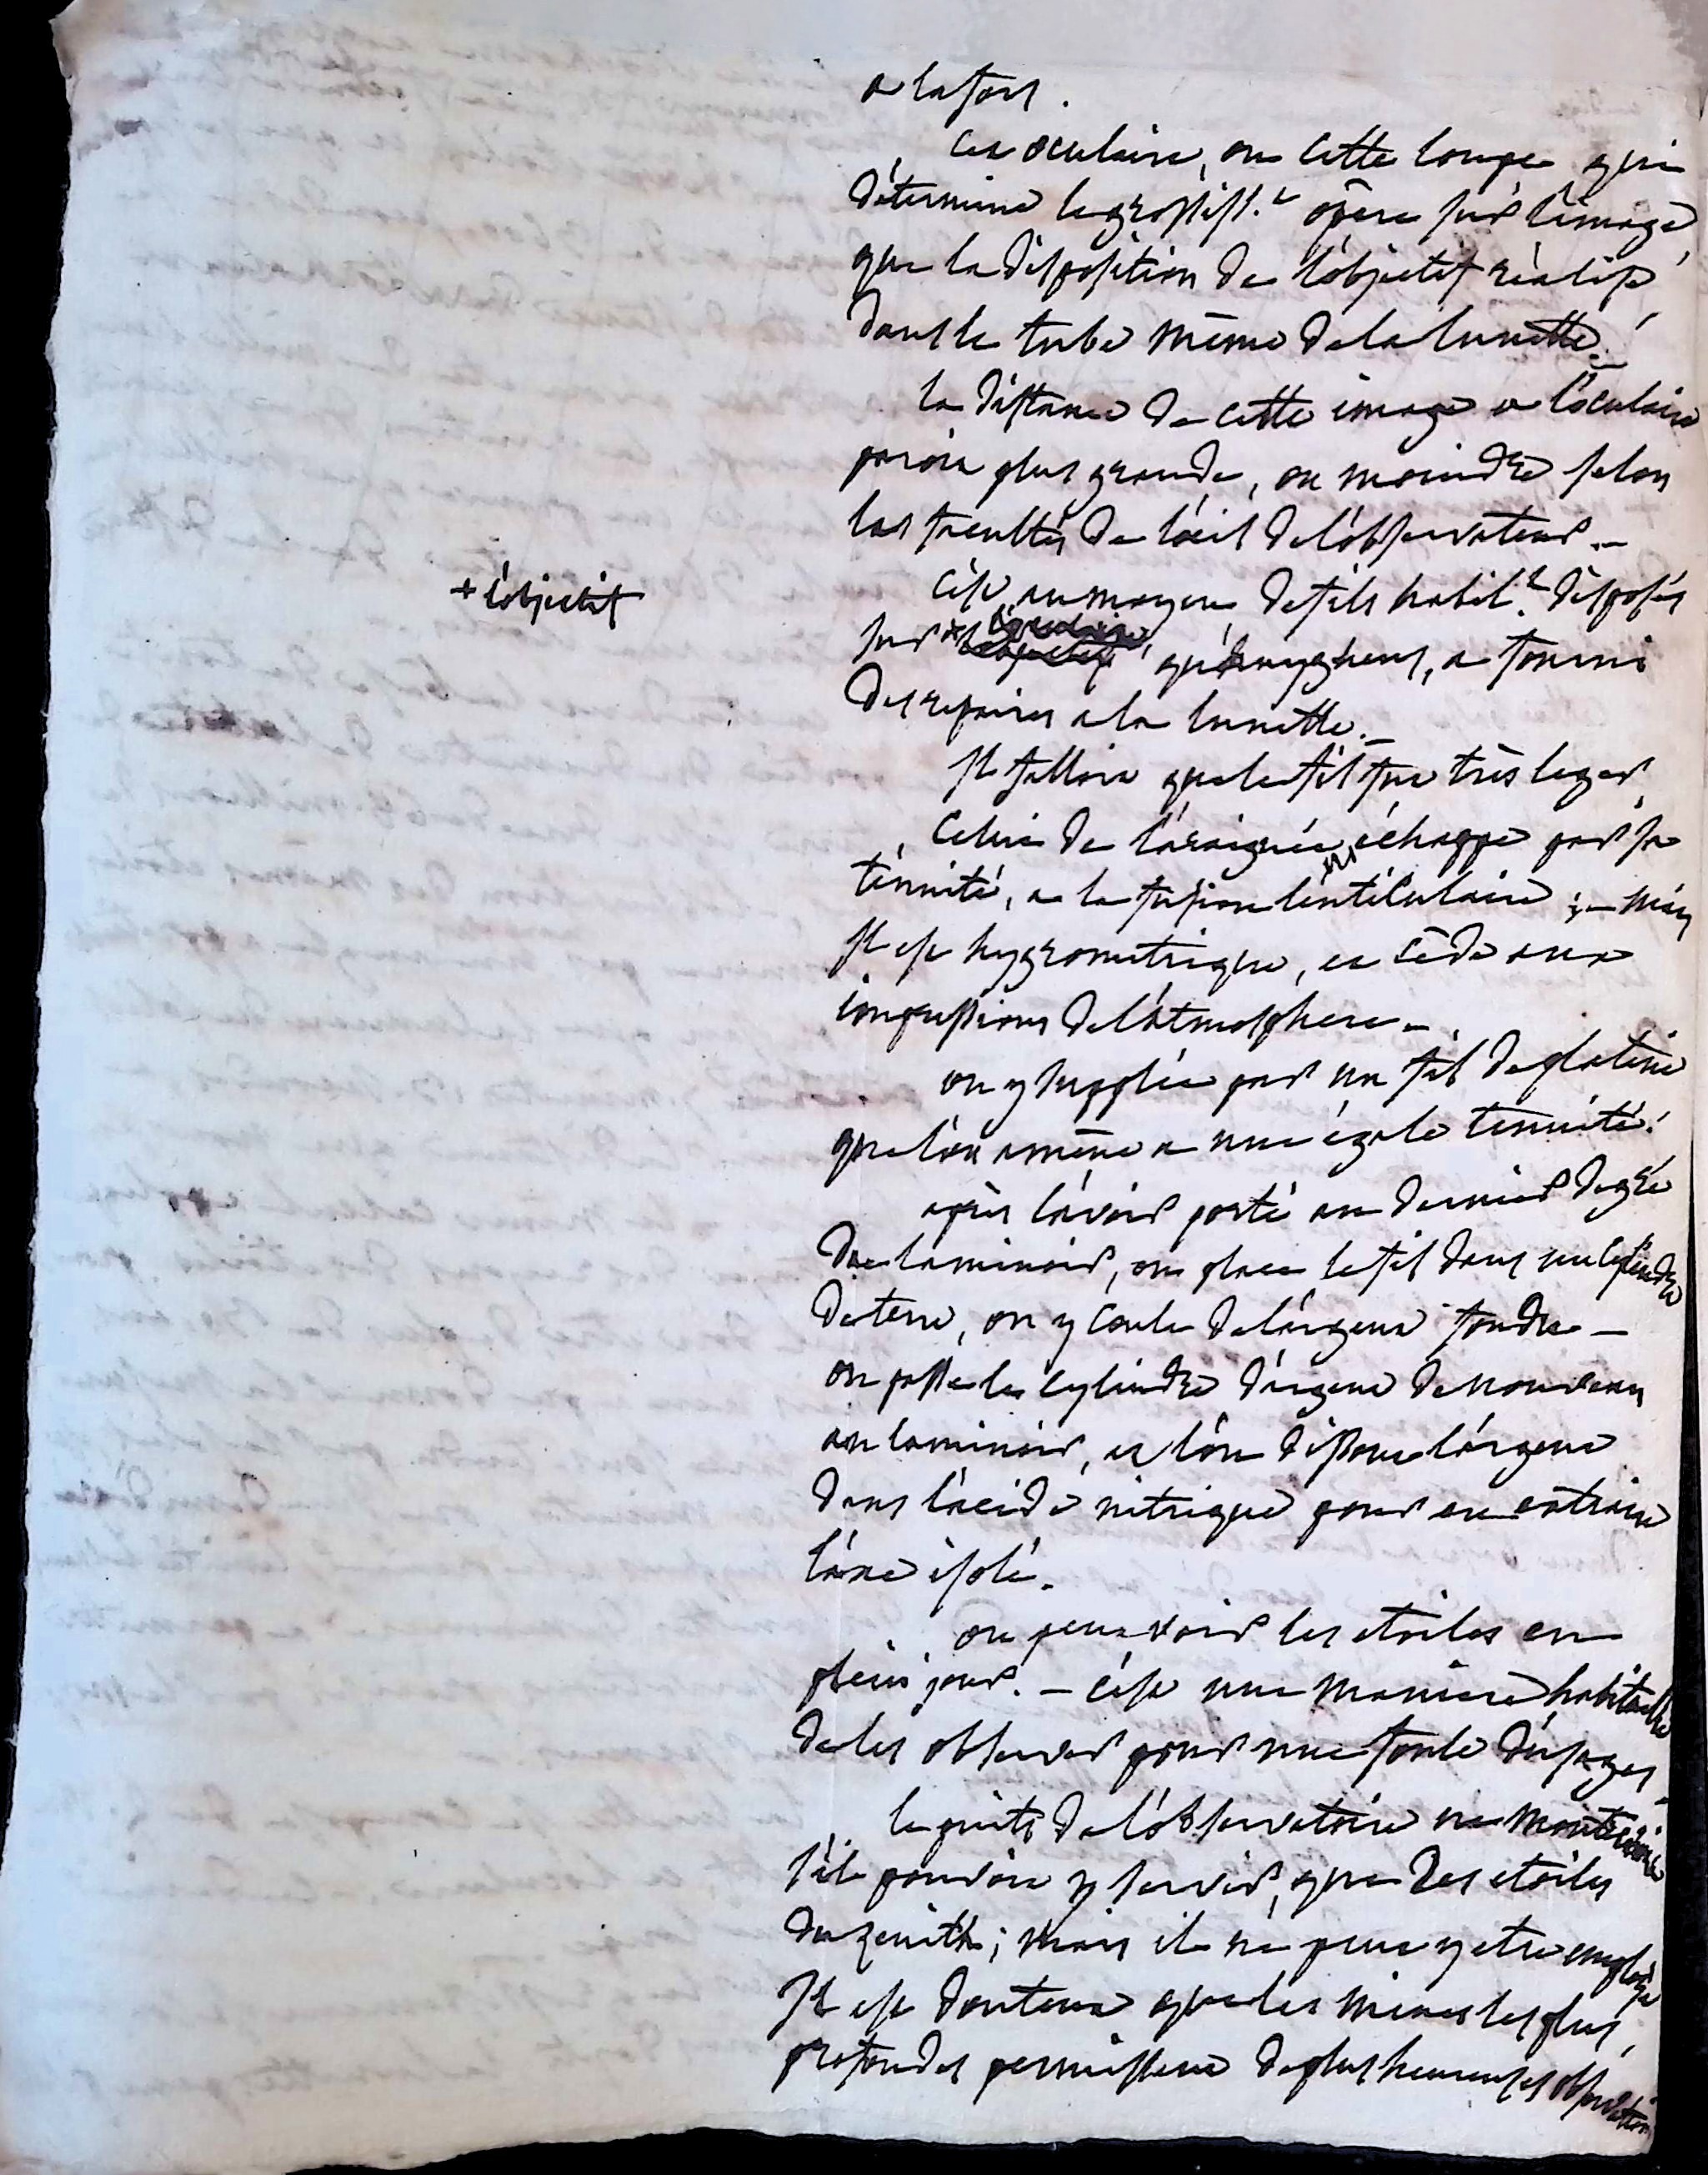 a la fois.
cet oculaire, ou cette loupe qui
détermine le grossiss.t opère sur l'image
que la disposition de l'objectif réalise
dans le tube même de la lunette.
la distance de cette image a l'oculaire
paroit plus grande, ou moindre selon
les facultés de l'œil de l'observateur. —
c'est au moyen de fils habil.t disposés
+ l'objectif
sur + l'oculaire qu'huyghens, a fourni
des repaires a la lunette. —
Il falloit que le fil fut très leger
Celui de l'araignée échappe par sa
ténuité, a la fusion lenticulaire ; — mais
Il est hygrometrique, et cède aux
impressions de l'atmosphere —
on y supplée par un fil de platine
que l'on amène a une égale ténuité.
après l'avoir porté au dernier degré
de laminoir, on place le fil dans un cylindre
de terre, on y coule de l'argent fondu —
on passe le cylindre d'argent de nouveau
au laminoir, et l'on dissout l'argent
dans l'acide nitrique pour en extraire
l'axe isolé.
on peut voir les etoiles en
plein jour. — c'est une maniere habituelle
de les observer pour une foule d'usages
le puits de l'observatoire ne montreroit
s'il pouvoit y servir, que des etoiles
du zenith ; mais il ne peut y etre employé
Il est douteux que les mines les plus
profondes permissent de plus heureuses observations